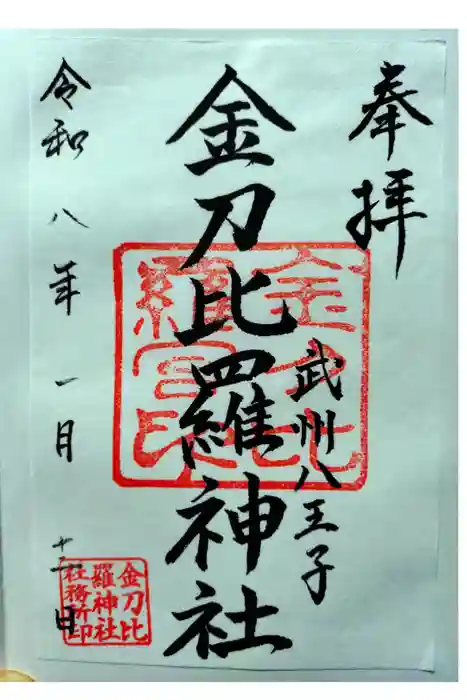 奉拝
武州八王子
金刀比羅神社
令和八年一月十二日
金刀比
羅神社
社務所印